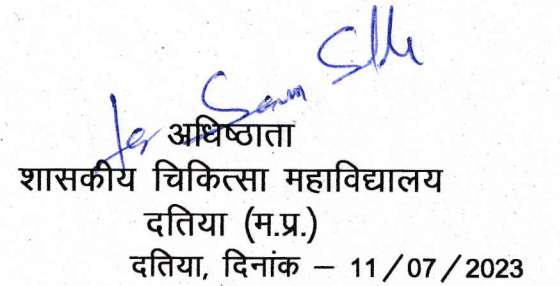 अधिष्ठाता
शासकीय चिकित्सा महाविद्यालय
दतिया (म.प्र.)
दतिया, दिनांक – 11/07/2023